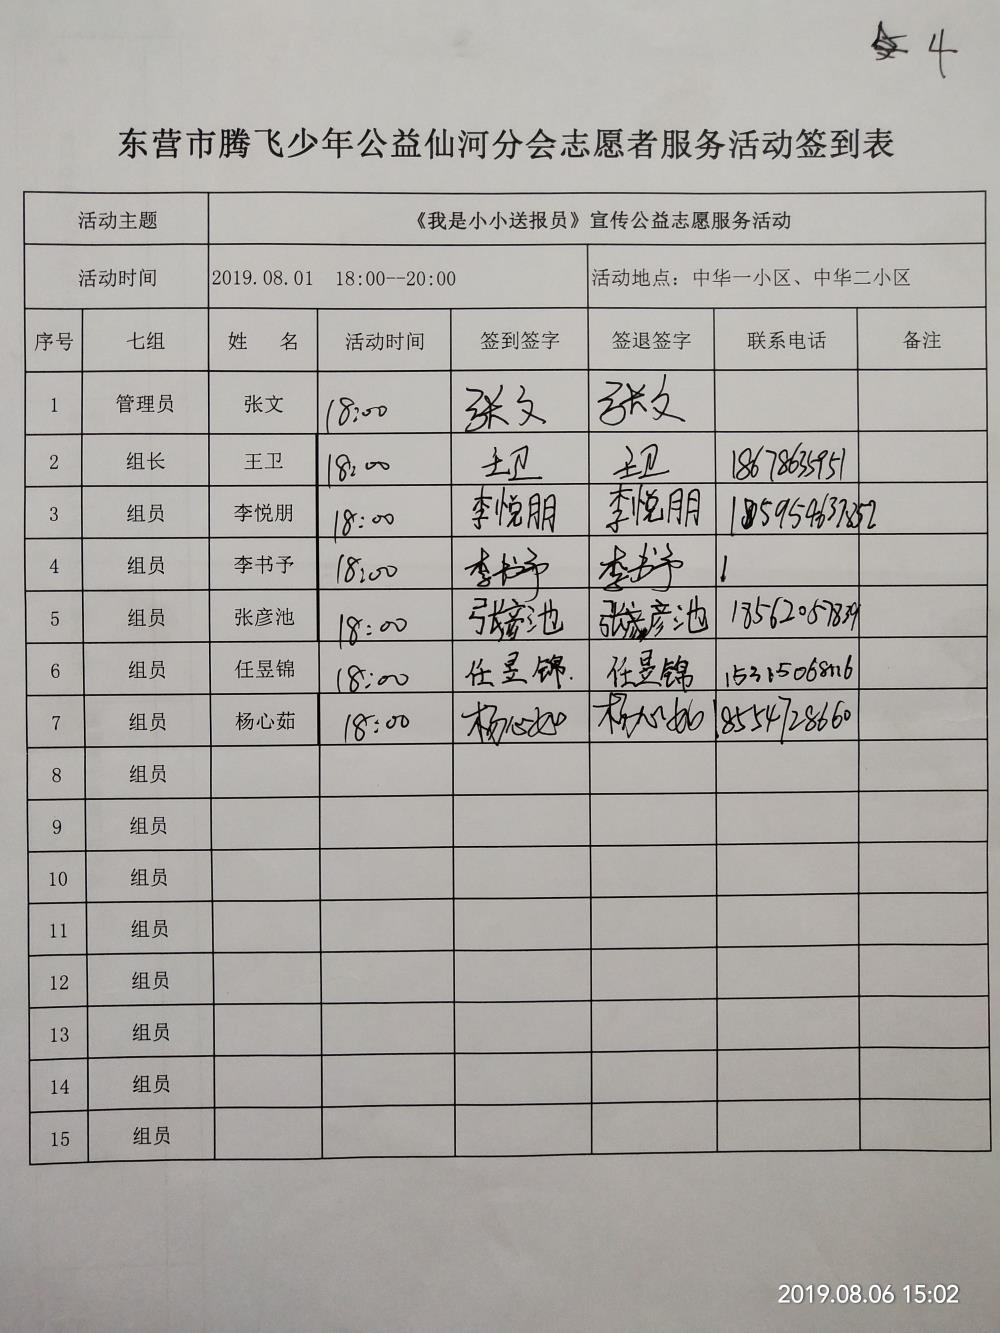 4
东营市腾飞少年公益仙河分会志愿者服务活动签到表
活动主题 《我是小小送报员》宣传公益志愿服务活动
活动时间 2019.08.01 18:00--20:00 活动地点：中华一小区、中华二小区
序号 七组 姓 名 活动时间 签到签字 签退签字 联系电话 备注
1 管理员 张文 18:00 张文 张文
2 组长 王卫 18:00 王卫 王卫 18678635951
3 组员 李悦朋 18:00 李悦朋 李悦朋
4 组员 李书予 18:00 李书予 李书予 1
5 组员 张彦池 18:00 张彦池 张彦池 18562057839
6 组员 任昱锦 18:00 任昱锦. 任昱锦
7 组员 杨心茹 18:00 杨心茹 杨心茹 18554728660
8 组员
9 组员
10 组员
11 组员
12 组员
13 组员
14 组员
15 组员
2019.08.06 15:02